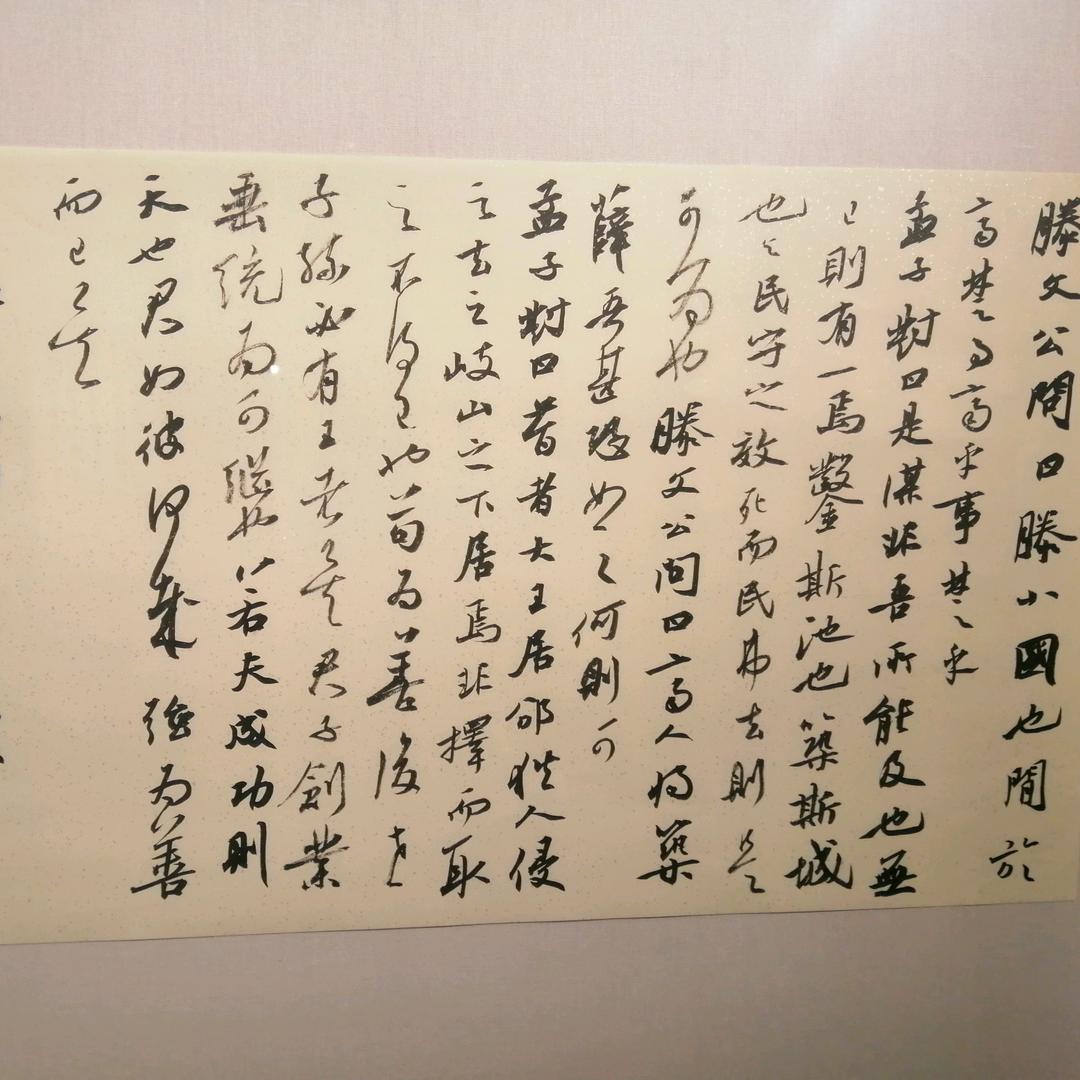 滕文公問曰滕小國也間於
齊楚事齊乎事楚乎
孟子對曰是謀非吾所能及也無
已則有一焉鑿斯池也築斯城
也與民守之效死而民弗去則是
可為也滕文公問曰齊人將築
薛吾甚恐如之何則可
孟子對曰昔者大王居邠狄人侵
之去之岐山之下居焉非擇而取
之不得已也苟為善後世
子孫必有王者矣君子創業
垂統為可繼也若夫成功則
天也君如彼何哉強為善
而已矣